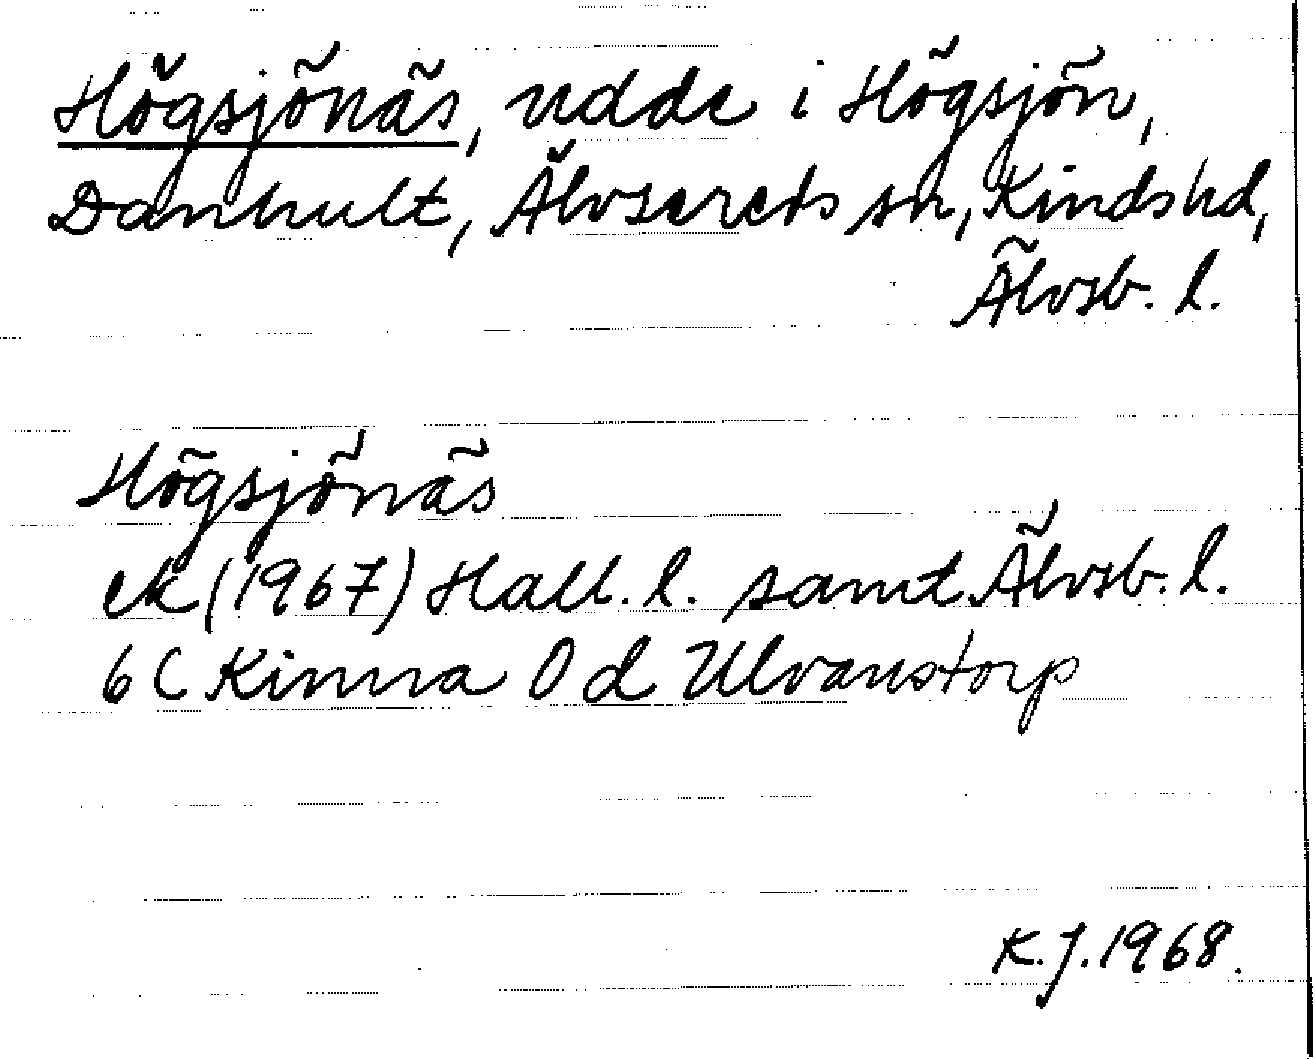 Högsjönäs, udde i Högsjön,
Danhult, Älvsereds sn, Kinds hd,
Älvsb. l.
Högsjönäs
ek (1967) Hall. l. samt Älvsb. l.
6 C Kinna 0 d Ulvanstorp
K. J. 1968.